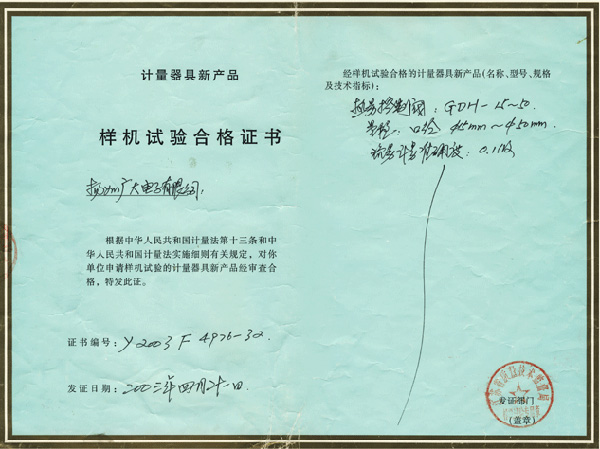 计量器具新产品
样机试验合格证书
广大电子有限公司:
根据中华人民共和国计量法第十三条和中
华人民共和国计量法实施细则有关规定,对你
单位申请样机试验的计量器具新产品经审查合
格,特发此证。
证书编号:Y2003F4976-32
发证日期:二00三年四月二十一日
经样机试验合格的计量器具新产品(名称、型号、规格
及技术指标):
热量控制阀:GDH-15~50.
口径 φ15mm~φ50mm
流量计量准确度:0.1级
发证部门
(盖章)